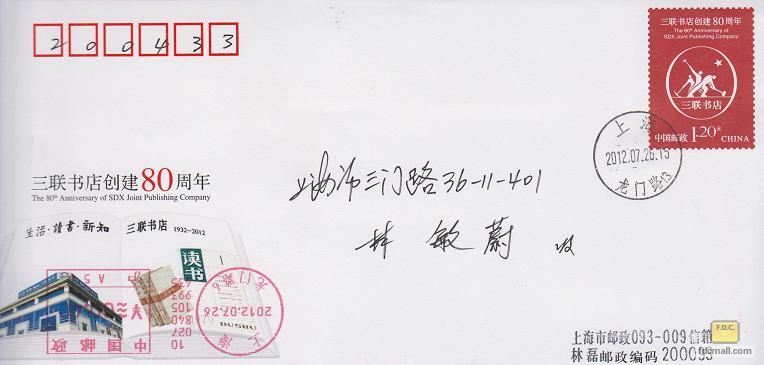 200433
三联书店创建80周年
The 80th Anniversary of
SDX Joint Publishing Company
三联书店
中国邮政 1.20元 CHINA
上海
2012.07.26.13
龙门路13
上海市三门路36-11-401
林 敏蔚 收
三联书店创建80周年
The 80th Anniversary of SDX Joint Publishing Company
生活·讀書·新知
三联书店 1932-2012
读书
DUSHU
龙门路
2012.07.26
上海
中国邮政
10
027
840
105
993
635
上海市邮政093-009信箱
林磊邮政编码 200093
F.D.C.
fdcmall.com